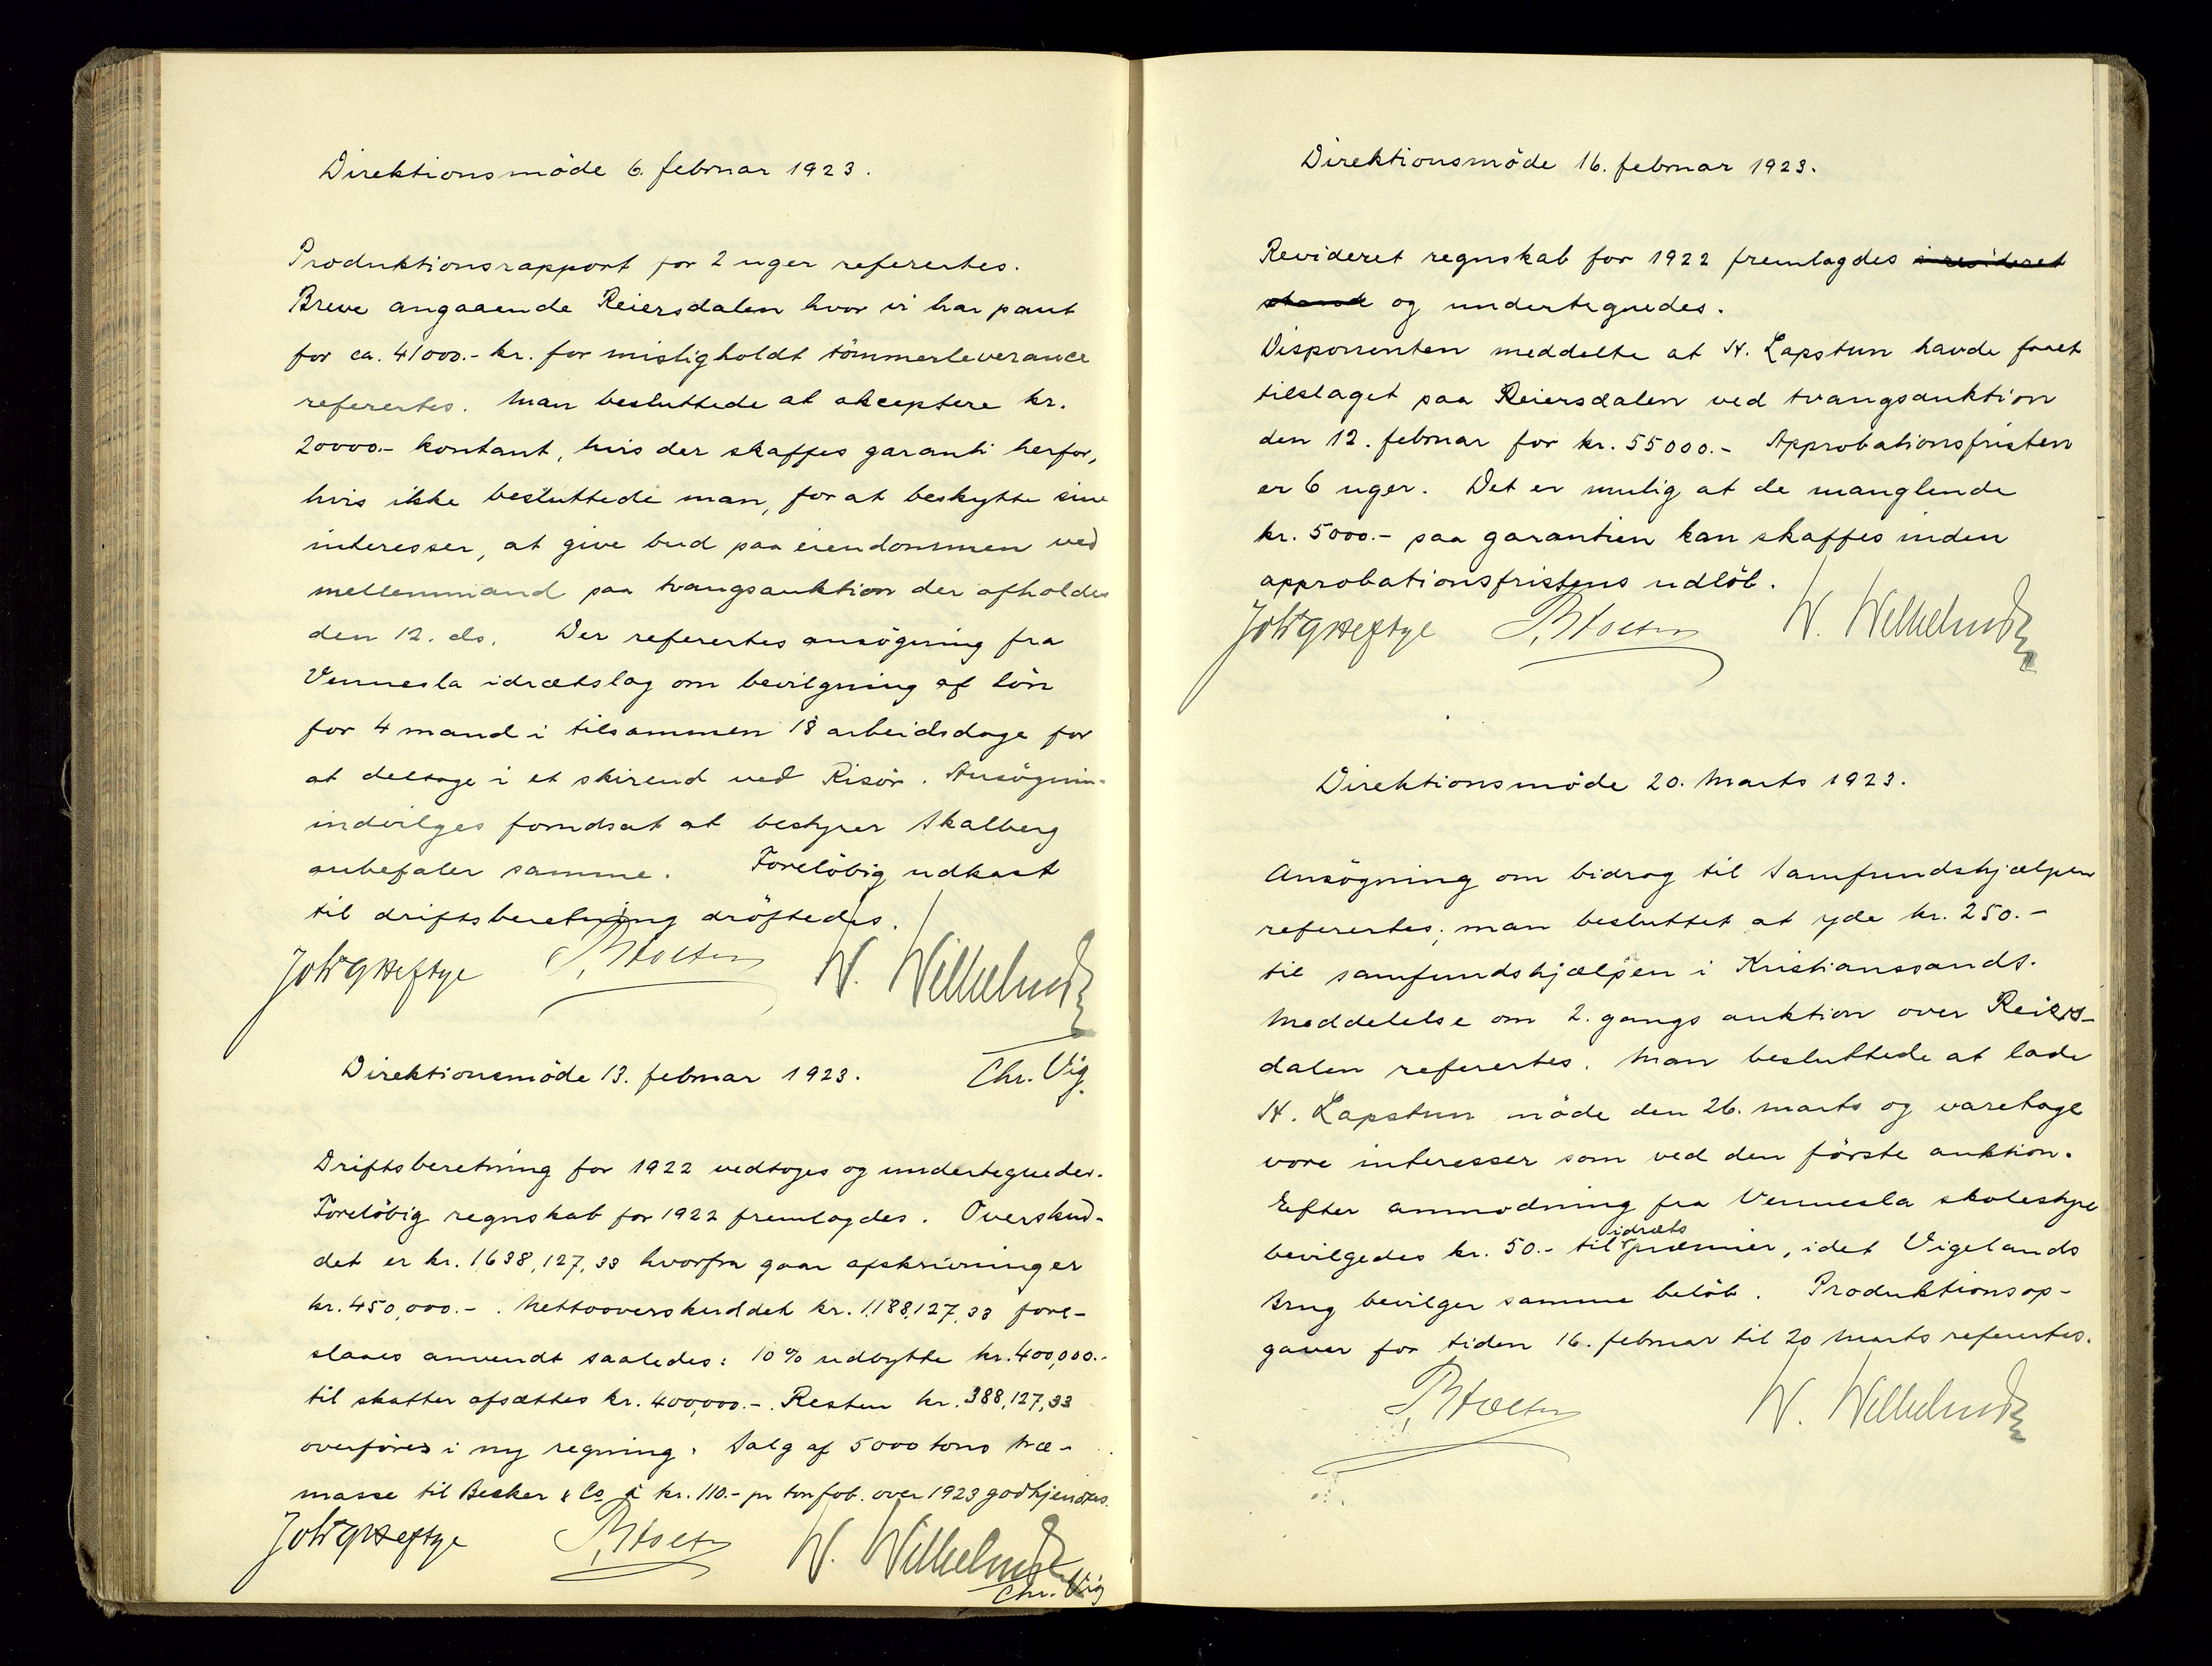 Direktionsmöde 6. februar 1923.
Produktionsrapport for 2 uger referertes.
Breve angaaende Reiersdalen hvor vi har pant
for ca. 41000.- kr. for misligholdt tömmerleverance
referertes. Man besluttede at akceptere kr.
20000.- kontant, hvis der skaffes garanti herfor,
hvis ikke besluttede man, for at beskytte sine
interesser, at give bud paa eiendommen ved
mellemmand paa tvangsauktion der afholdes
den 12. ds. Der referertes ansögning fra
Vennesla idrætslag om bevilgning af lön
for 4 mand i tilsammen 18 arbeidsdage for
at deltage i et skirend ved Risör. Ansögnin-
indvilges forudsat at bestyrer Skalberg
anbefaler samme. Foreløbig udkast
til driftsberetning dröftedes.
Joh G Heftye P. Stoltz W. Wilhelmsen
Chr. Vig.
Direktionsmöde 13. februar 1923.
Driftsberetning for 1922 vedtoges og undertegnedes.
Forelöbig regnskab for 1922 fremlagdes. Overskud-
det er kr. 1,638,127,33 hvorfra gaar afskrivninger
kr. 450,000.- . Nettooverskuddet kr. 1,188,127,33 fore-
slaaes anvendt saaledes: 10% udbytte kr. 400,000.-
til skatter afsættes kr. 400,000.-. Resten kr. 388,127,33
overföres i ny regning. Salg af 5000 tons træ-
masse til Becker & Co á kr. 110.- pr ton fob. over 1923 godkjendtes.
Joh G Heftye W. Wilhelmsen
Chr. Vig
Direktionsmöde 16. februar 1923.
Revideret regnskab for 1922 fremlagdes i revideret
stand og undertegnedes.
Disponenten meddelte at N. Lapstun havde faaet
tilslaget paa Reiersdalen ved tvangsauktion
den 12. februar for kr. 55000.- Approbationsfristen
er 6 uger. Det er mulig at de manglende
kr. 5000.- paa garantien kan skaffes inden
approbationsfristens udlöb.
Joh G Heftye W. Wilhelmsen
Direktionsmöde 20. Marts 1923.
Ansögning om bidrag til Samfundshjælpen
referertes; man besluttet at yde kr. 250.-
til samfundshjælpen i Kristianssand S.
Meddelelse om 2. gangs auktion over Reiers-
dalen referertes. Man besluttede at lade
N. Lapstun möde den 26. marts og varetage
vore interesser som ved den förste auktion.
Efter anmodning fra Vennesla skolestyre
bevilgedes kr. 50.- til idrætspræmier, idet Vigelands
Brug bevilger samme belöb. Produktionsop-
gaver for tiden 16. februar til 20 Marts referertes.
W. Wilhelmsen